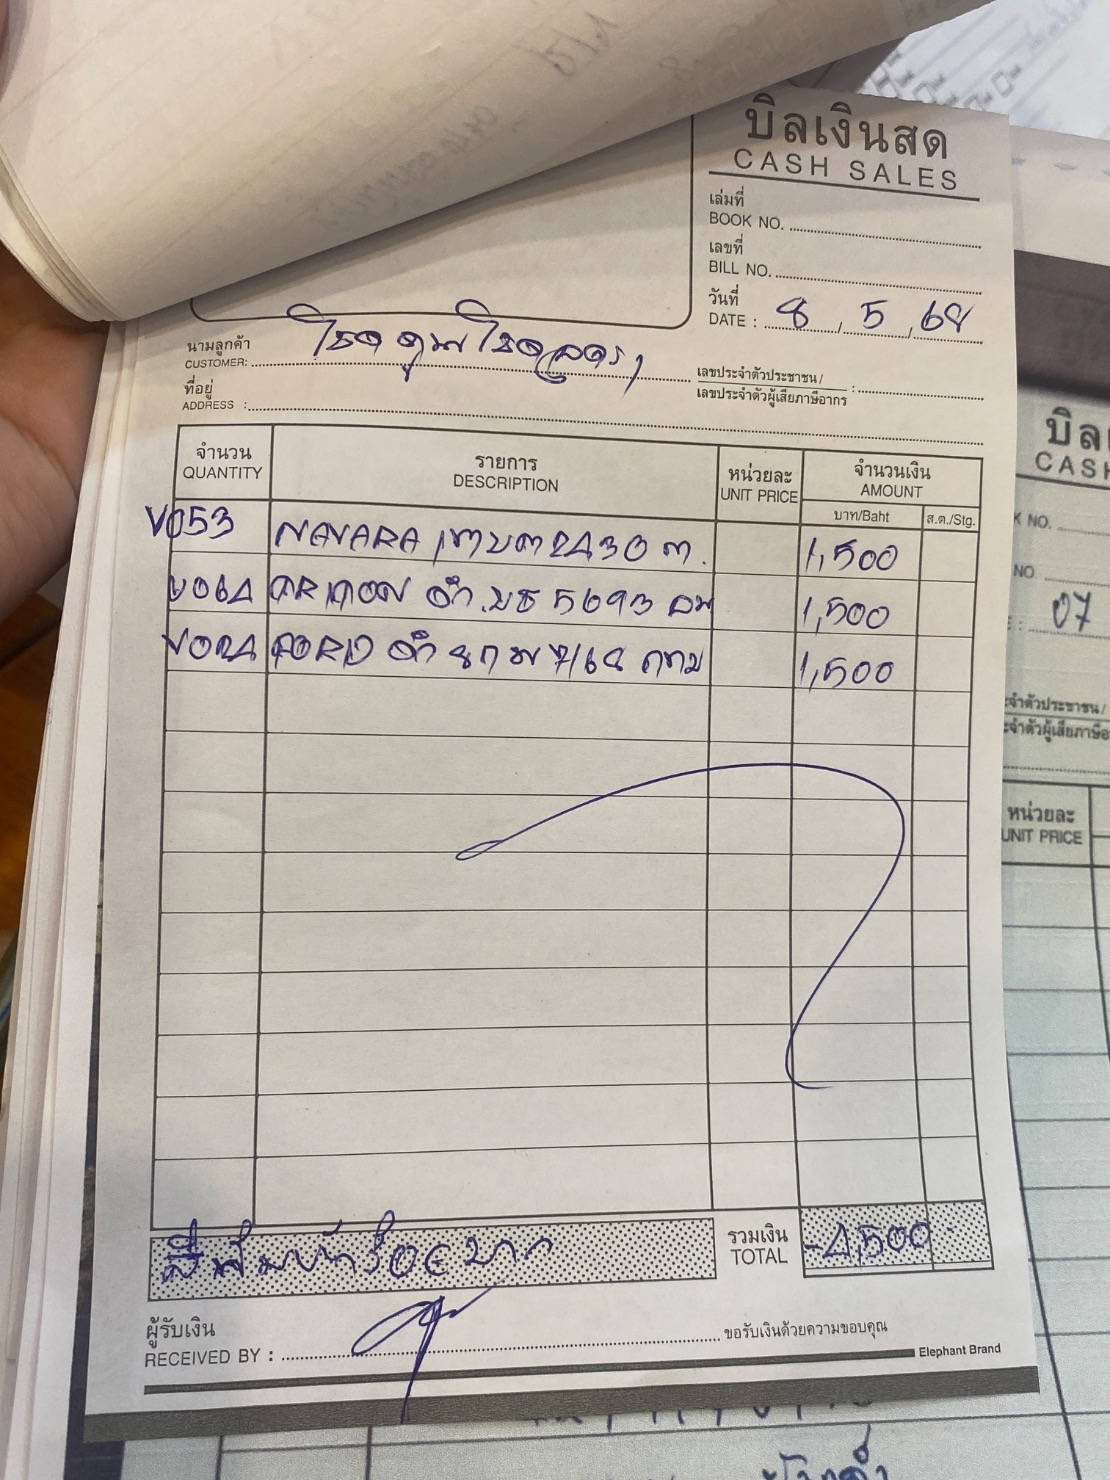 บิลเงินสด
CASH SALES
เล่มที่
BOOK NO.
เลขที่
BILL NO.
วันที่
DATE : 8 / 5 / 68
นามลูกค้า
CUSTOMER:
เลขประจำตัวประชาชน /
เลขประจำตัวผู้เสียภาษีอากร :
ที่อยู่
ADDRESS :
จำนวน รายการ หน่วยละ จำนวนเงิน
QUANTITY DESCRIPTION UNIT PRICE AMOUNT
บาท/Baht ส.ต./Stg.
V053 NAVARA เทา 2430 1,500
V064 ดำ 5693 1,500
V024 FORD ดำ 7168 กทม 1,500
สี่พันห้าร้อยบาท
รวมเงิน
TOTAL -4,500-
ผู้รับเงิน
RECEIVED BY : ขอรับเงินด้วยความขอบคุณ
Elephant Brand
บิล
CASH
K NO.
NO.
07
หน่วยละ
UNIT PRICE